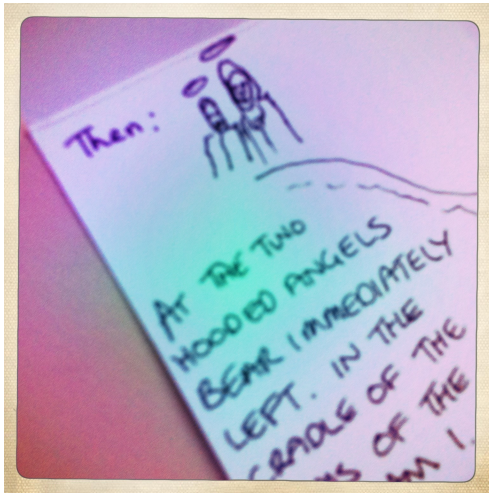 Then:
AT THE TWO
HOODED ANGELS
BEAR IMMEDIATELY
LEFT. IN THE
CRADLE OF THE
OF THE
I.